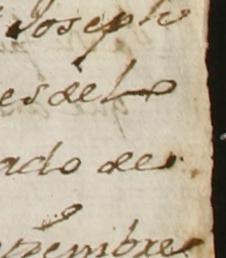 Joseph
es del
ado de
tiembre